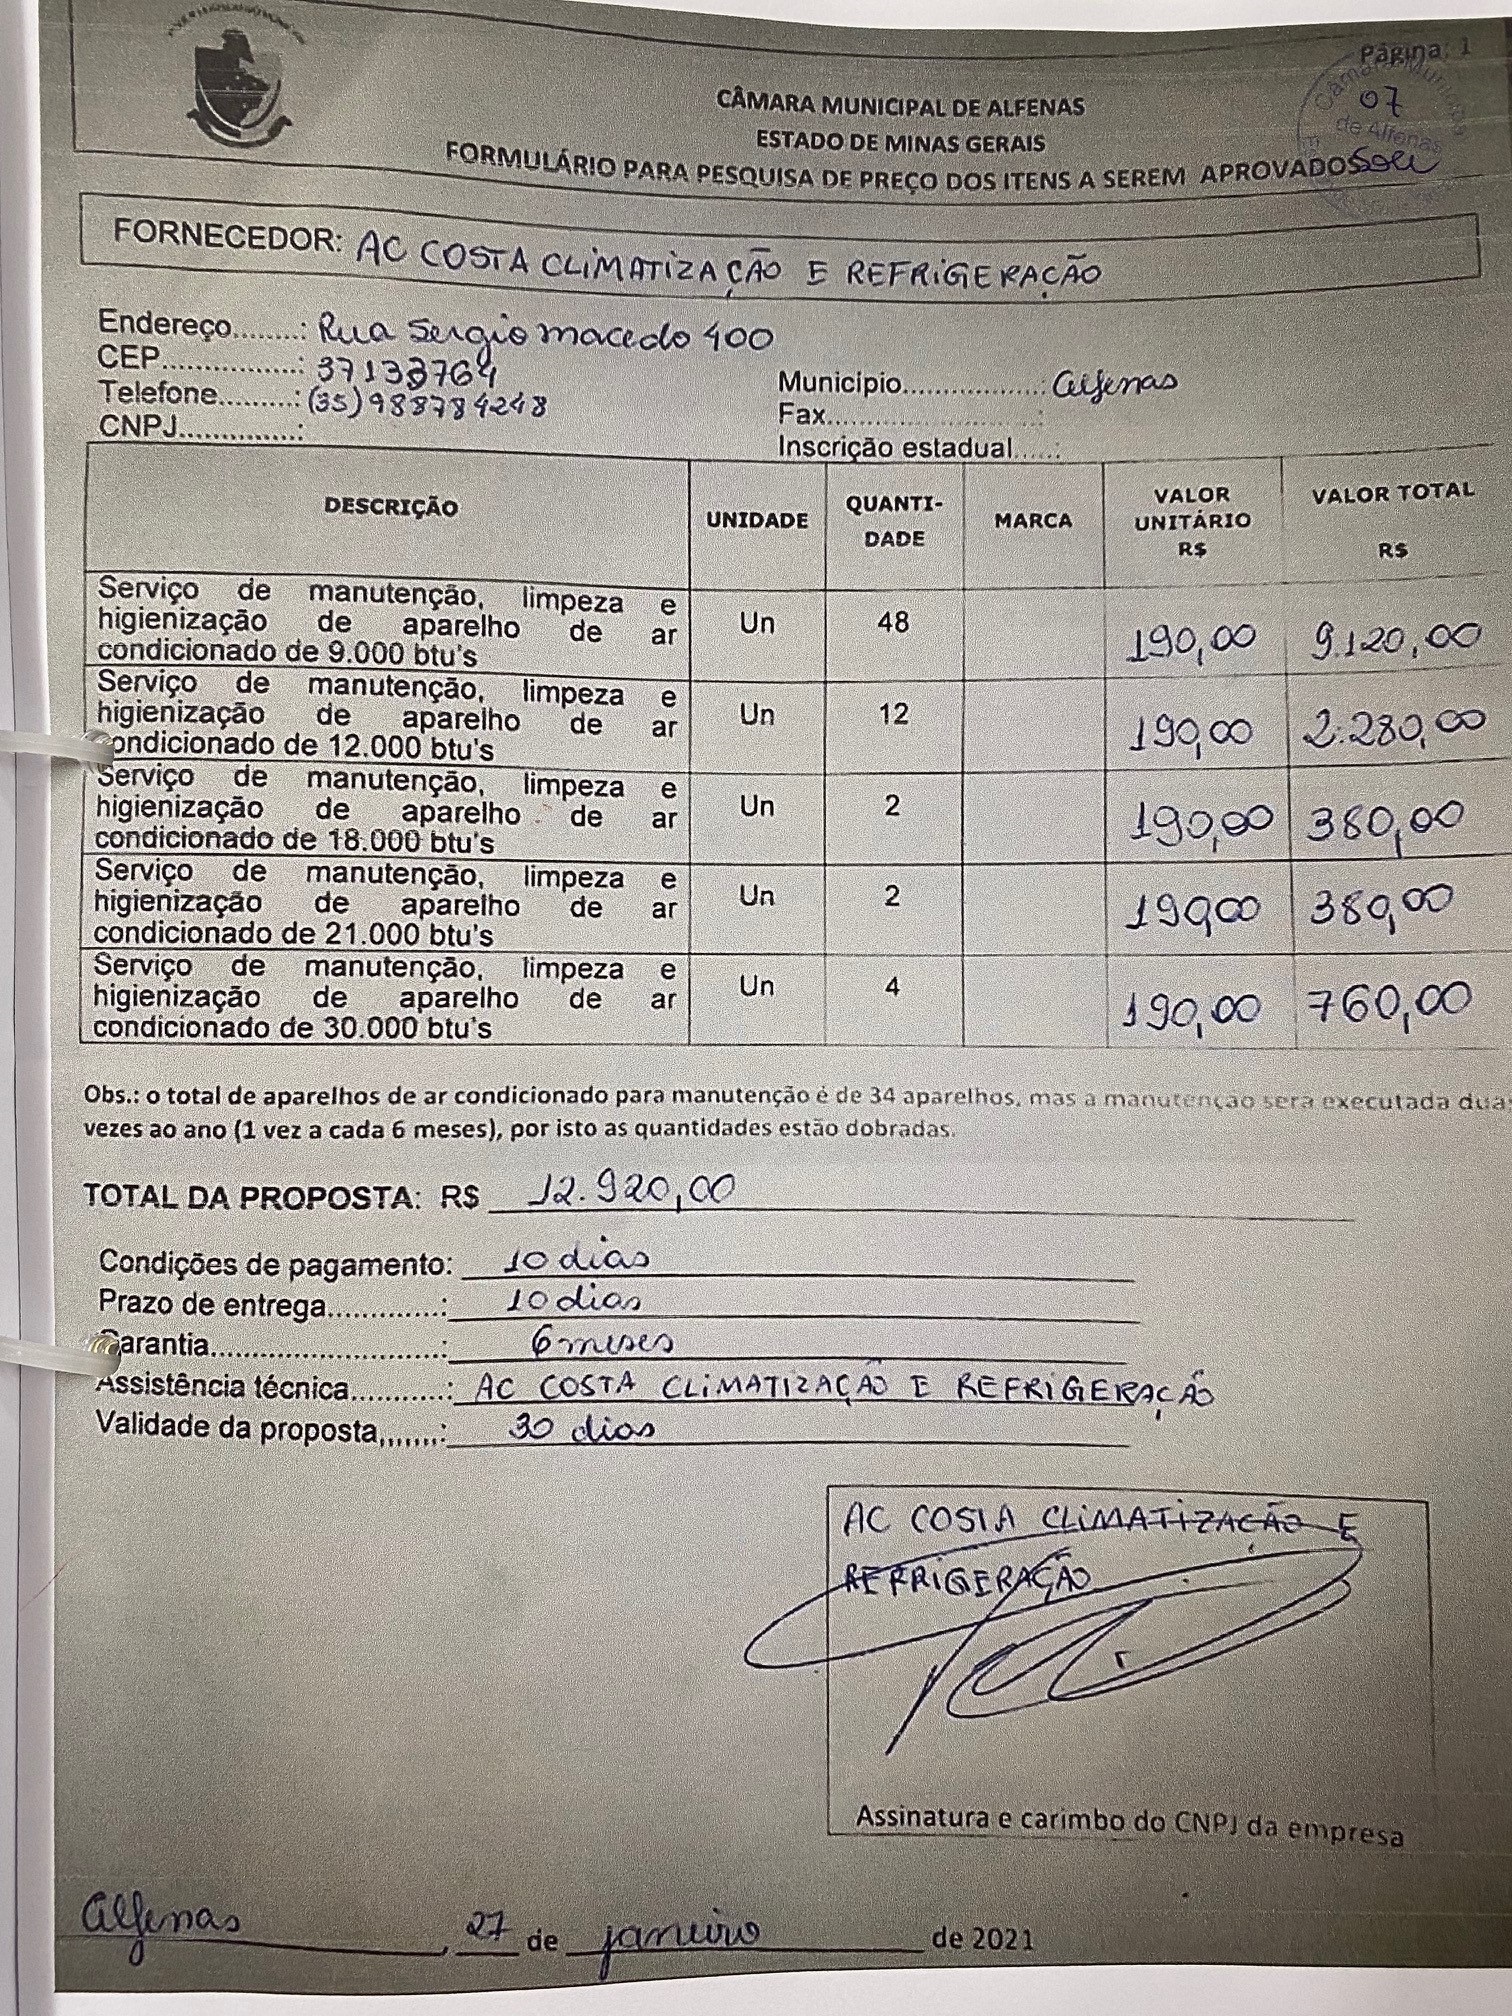 Página: 1
07
CÂMARA MUNICIPAL DE ALFENAS
ESTADO DE MINAS GERAIS
FORMULÁRIO PARA PESQUISA DE PREÇO DOS ITENS A SEREM APROVADOS
de Alfenas
FORNECEDOR: AC COSTA CLIMATIZAÇÃO E REFRIGERAÇÃO
Endereço........: Rua Sergio macedo 400
CEP.................: 37133764
Telefone..........: (35) 988784248
CNPJ...............:
Município.................: Alfenas
Fax..........................:
Inscrição estadual......:
DESCRIÇÃO UNIDADE QUANTI-DADE MARCA VALOR UNITÁRIO R$ VALOR TOTAL R$
Serviço de manutenção, limpeza e
higienização de aparelho de ar
condicionado de 9.000 btu's
Un 48 190,00 9.120,00
Serviço de manutenção, limpeza e
higienização de aparelho de ar
condicionado de 12.000 btu's
Un 12 190,00 2.280,00
Serviço de manutenção, limpeza e
higienização de aparelho de ar
condicionado de 18.000 btu's
Un 2 190,00 380,00
Serviço de manutenção, limpeza e
higienização de aparelho de ar
condicionado de 21.000 btu's
Un 2 190,00 380,00
Serviço de manutenção, limpeza e
higienização de aparelho de ar
condicionado de 30.000 btu's
Un 4 190,00 760,00
Obs.: o total de aparelhos de ar condicionado para manutenção é de 34 aparelhos, mas a manutenção sera executada duas
vezes ao ano (1 vez a cada 6 meses), por isto as quantidades estão dobradas.
TOTAL DA PROPOSTA: R$ 12.920,00
Condições de pagamento: 10 dias
Prazo de entrega.............: 10 dias
Garantia..........................: 6 meses
Assistência técnica...........: AC COSTA CLIMATIZAÇÃO E REFRIGERAÇÃO
Validade da proposta,,,,,,,: 30 dias
AC COSTA CLIMATIZAÇÃO E
REFRIGERAÇÃO
Assinatura e carimbo do CNPJ da empresa
Alfenas, 27 de janeiro de 2021